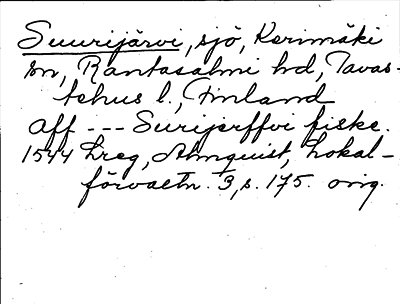 Suurijärvi, sjö, Kerimäki
sn, Rantasalmi hd, Tavas-
tehus l., Finland
Aff --- Surijerffvi fiske.
1544 Lreg, Almquist, Lokal-
förvaltn. 3, s. 175. orig.